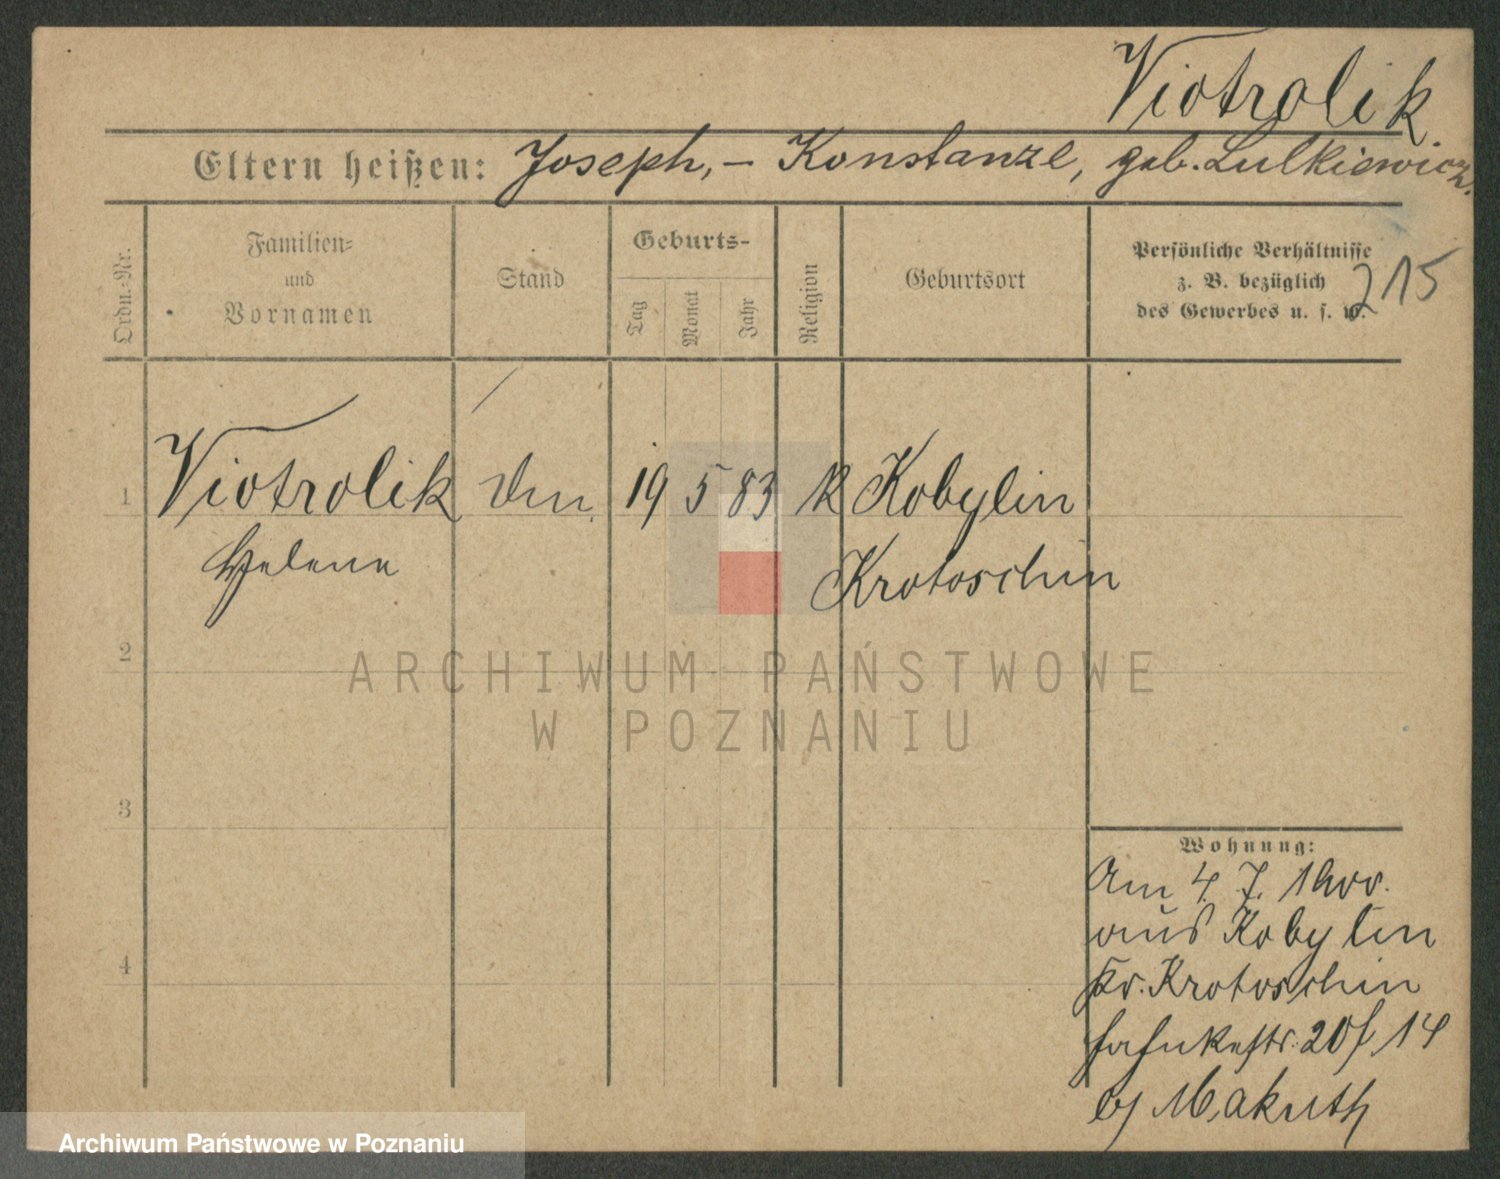 Viotrolik
Eltern heißen: Joseph, – Konstanze, geb. Lulkiewicz.
Ordn.-Nr.
Familien-
und
Vornamen
Stand
Geburts-
Tag
Monat
Jahr
Religion
Geburtsort
Persönliche Verhältnisse
z. B. bezüglich
des Gewerbes u. s. w.
215
1 Viotrolik 19 5 83 K Kobylin
Helene Krotoschin
2
ARCHIWUM PAŃSTWOWE
W POZNANIU
3
Wohnung:
Am 4. 7.
aus Kobylin
4
Kr. Krotoschin
20 14
bj Makuth
Archiwum Państwowe w Poznaniu